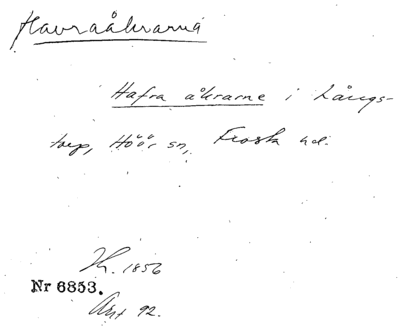 Havraåkrarna
Hafra åkrarne i Långs-
torp, Höör sn, Frosta hd.
Th. 1856
Nr 6853.
Akt 92.